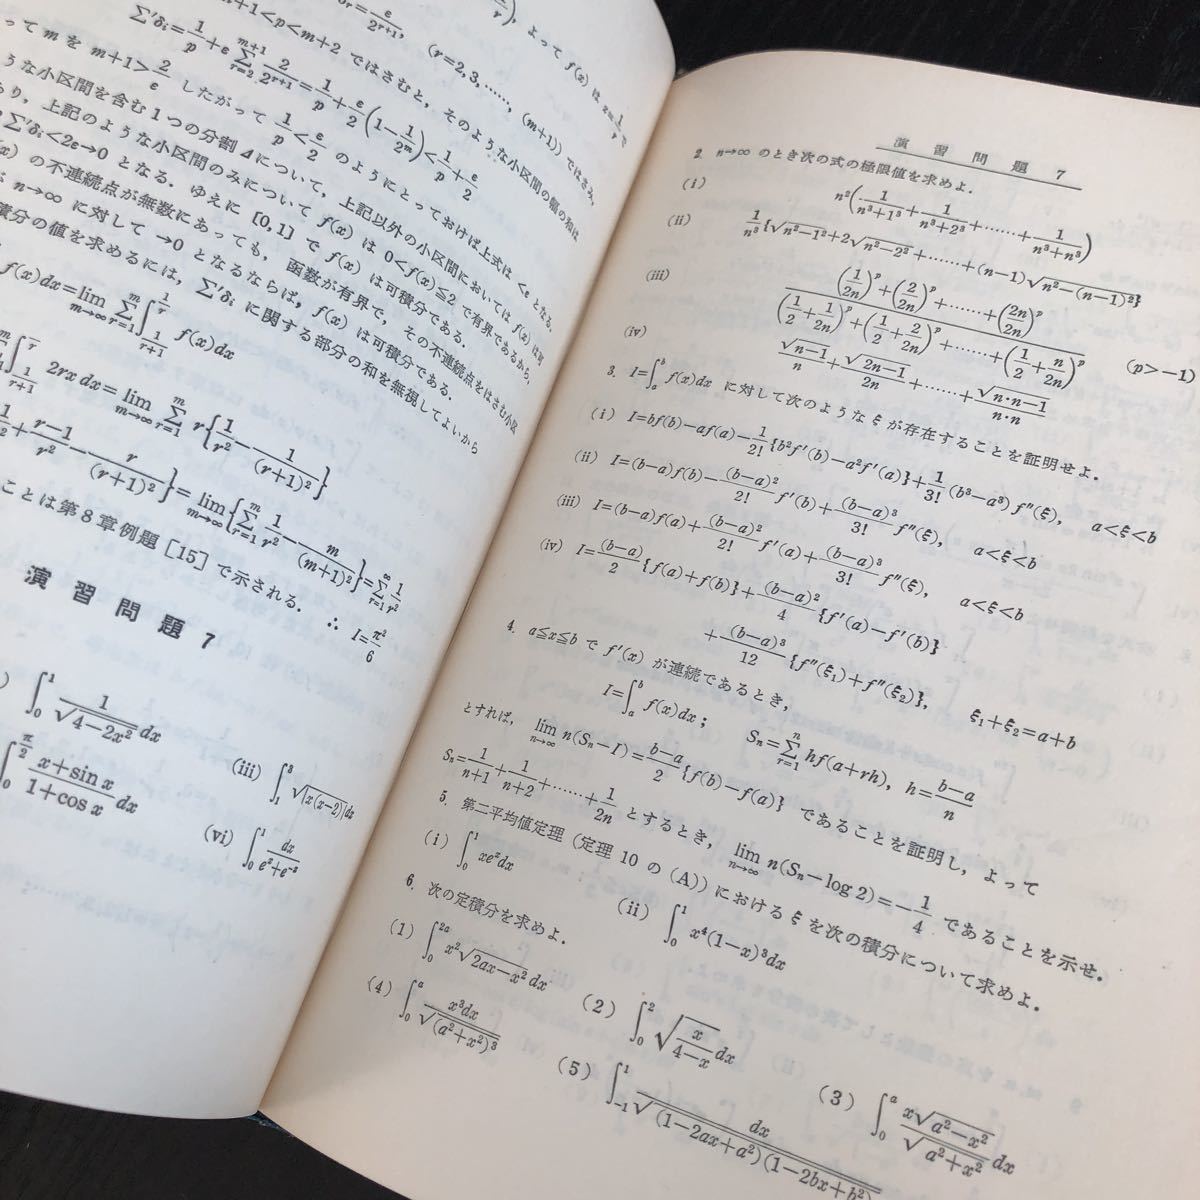 n+1<p<m+2 ではさむと, そのような小区間の幅の和は
(r=2, 3, ……, (m+1)) ではさみ,
よって f(x) は x=1/r で
Σ'δi=1/p+ε Σ_{r=2}^{m+1} 2/2^{r+1}=1/p+ε/2(1-1/2^m)<1/p+ε/2
って m を m+1>2/ε したがって 1/p<ε/2 のようにとっておけば上式は <ε となる.
うな小区間を含む1つの分割 Δ について, 上記以外の小区間においては f(x) は可
り, 上記のような小区間のみについて f(x) は 0<f(x)≦2 で有界であるから,
Σ'δi<2ε→0 となる. ゆえに [0,1] で f(x) は可積分である.
(x) の不連続点が無数にあっても, 函数が有界で, その不連続点をはさむ小区
n→∞ に対して →0 となるならば, f(x) は可積分である.
積分の値を求めるには, Σ'δi に関する部分の和を無視してよいから
f(x)dx=lim_{m→∞} Σ_{r=1}^{m} ∫_{1/(r+1)}^{1/r} f(x)dx
∫_{1/(r+1)}^{1/r} 2rx dx=lim_{m→∞} Σ_{r=1}^{m} r{1/r²-1/(r+1)²}
+(r-1)/r²-r/(r+1)²}=lim_{m→∞}{Σ_{r=1}^{m} 1/r²-m/(m+1)²}=Σ_{r=1}^{∞} 1/r²
ことは第8章例題 [15] で示される. ∴ I=π²/6
演習問題 7
∫_0^1 1/√(4-2x²) dx
(iii) ∫_1^3 √|x(x-2)|dx
∫_0^{π/2} (x+sin x)/(1+cos x) dx
(vi) ∫_0^1 dx/(e^x+e^{-x})
演習問題 7
2. n→∞ のとき次の式の極限値を求めよ.
(i) n²(1/(n³+1³)+1/(n³+2³)+……+1/(n³+n³))
(ii) 1/n³{√(n²-1²)+2√(n²-2²)+……+(n-1)√(n²-(n-1)²)}
(iii) ((1/2n)^p+(2/2n)^p+……+(2n/2n)^p)/((1/2+1/2n)^p+(1/2+2/2n)^p+……+(1/2+n/2n)^p) (p>-1)
(iv) √(n-1)/n+√(2n-1)/2n+……+√(n·n-1)/n·n
3. I=∫_a^b f(x)dx に対して次のような ξ が存在することを証明せよ.
(i) I=bf(b)-af(a)-1/2!{b²f'(b)-a²f'(a)}+1/3!(b³-a³)f''(ξ), a<ξ<b
(ii) I=(b-a)f(b)-(b-a)²/2! f'(b)+(b-a)³/3! f''(ξ), a<ξ<b
(iii) I=(b-a)f(a)+(b-a)²/2! f'(a)+(b-a)³/3! f''(ξ), a<ξ<b
(iv) I=(b-a)/2{f(a)+f(b)}+(b-a)²/4{f'(a)-f'(b)}
+(b-a)³/12{f''(ξ₁)+f''(ξ₂)}, ξ₁+ξ₂=a+b
4. a≦x≦b で f'(x) が連続であるとき,
I=∫_a^b f(x)dx; S_n=Σ_{r=1}^{n} hf(a+rh), h=(b-a)/n
とすれば, lim_{n→∞} n(S_n-I)=(b-a)/2{f(b)-f(a)} であることを証明し, よって
S_n=1/(n+1)+1/(n+2)+……+1/2n とするとき, lim_{n→∞} n(S_n-log 2)=-1/4 であることを示せ.
5. 第二平均値定理 (定理 10 の (A)) における ξ を次の積分について求めよ.
(i) ∫_0^1 xe^x dx
(ii) ∫_0^1 x⁴(1-x)³dx
6. 次の定積分を求めよ.
(1) ∫_0^{2a} x²√(2ax-x²)dx
(2) ∫_0^2 √(x/(4-x))dx
(3) ∫_0^a x√(a²-x²)/√(a²+x²) dx
(4) ∫_0^a x³dx/√((a²+x²)³)
(5) ∫_{-1}^1 dx/√((1-2ax+a²)(1-2bx+b²))